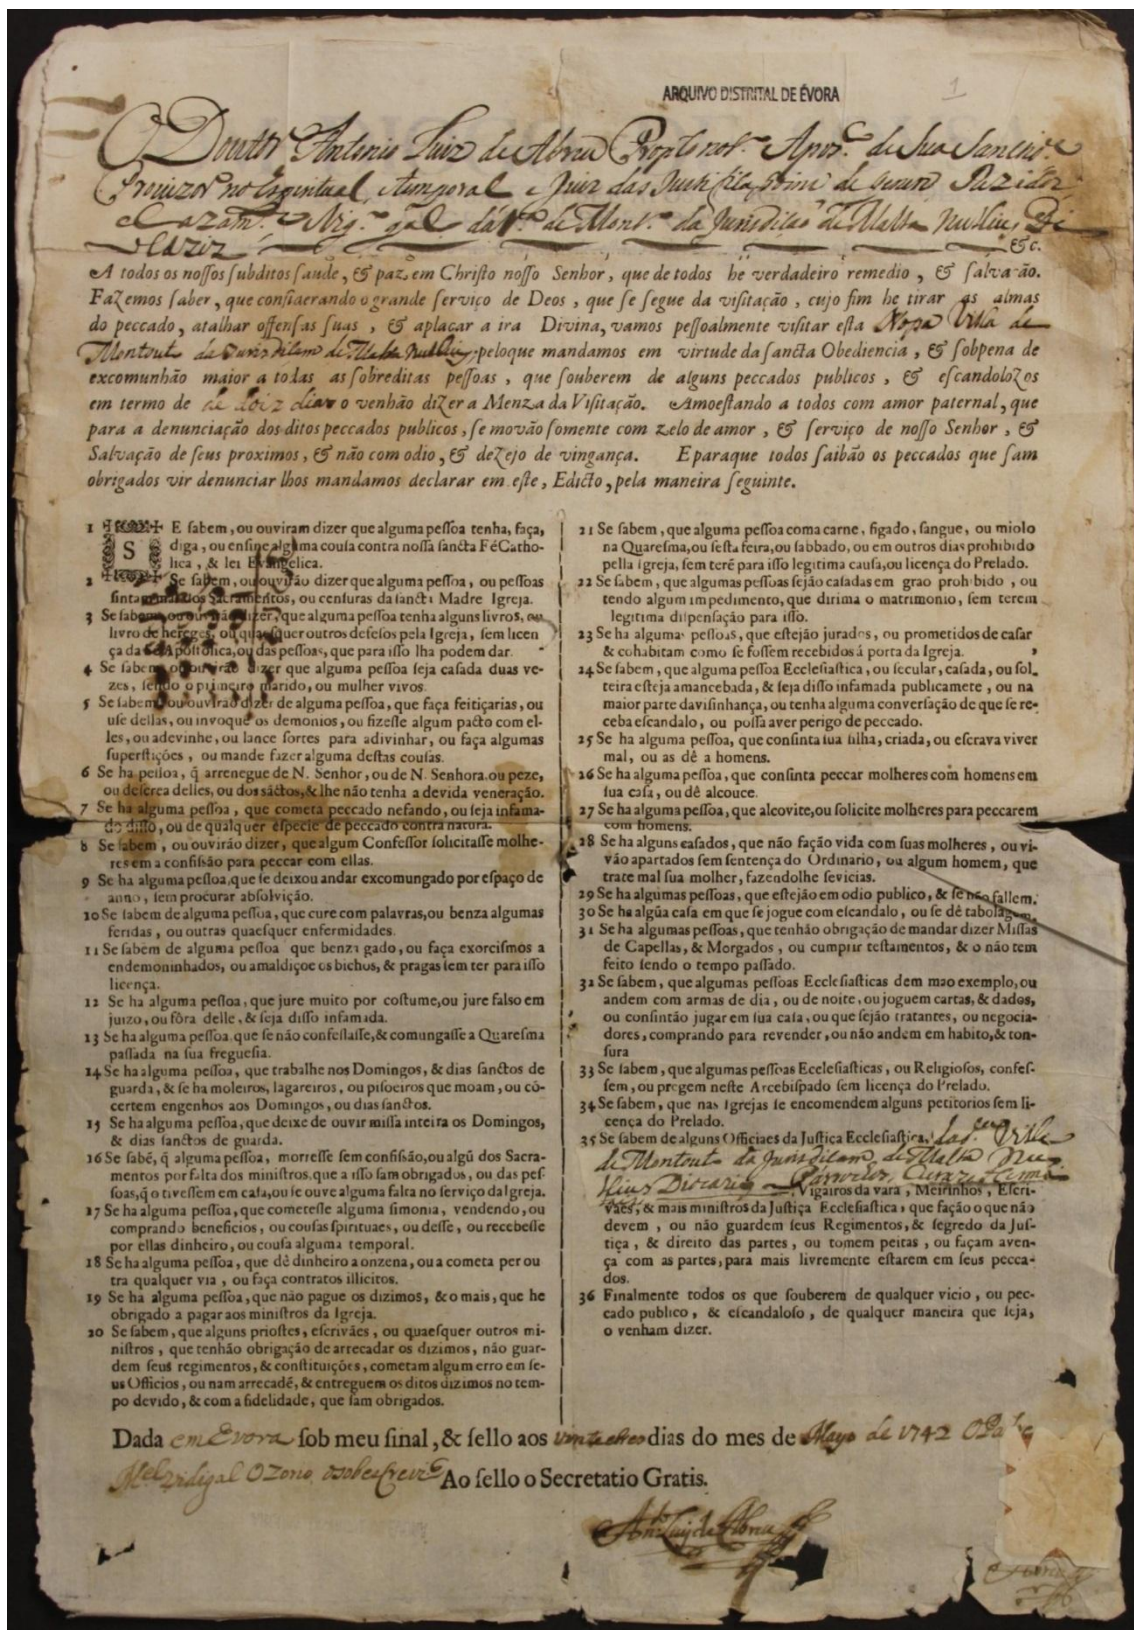 ARQUIVO DISTRITAL DE ÉVORA
1
O Doutor Antonio Luiz de Abreu de Sua
no Espiritual, e temporal e Juiz das de
da de da Jurisdição de Malta Nullius
&c.
A todos os nossos subditos saude, & paz em Christo nosso Senhor, que de todos he verdadeiro remedio, & salvação.
Fazemos saber, que considerando o grande serviço de Deos, que se segue da visitação, cujo fim he tirar as almas
do peccado, atalhar offensas suas, & aplacar a ira Divina, vamos pessoalmente visitar esta Nossa Villa de
Montouto de Jurisdilam de Malta Nullius, peloque mandamos em virtude da sancta Obediencia, & sobpena de
excomunhão maior a todas as sobreditas pessoas, que souberem de alguns peccados publicos, & escandolozos
em termo de de doiz dias o venhão dizer a Menza da Visitação. Amoestando a todos com amor paternal, que
para a denunciação dos ditos peccados publicos, se movão somente com zelo de amor, & serviço de nosso Senhor, &
Salvação de seus proximos, & não com odio, & dezejo de vingança. Eparaque todos saibão os peccados que sam
obrigados vir denunciar lhos mandamos declarar em este, Edicto, pela maneira seguinte.
1 SE sabem, ou ouviram dizer que alguma pessoa tenha, faça,
diga, ou ensine alguma cousa contra nossa sancta Fé Catho-
lica, & lei Evangelica.
2 Se sabem, ou ouvirão dizer que alguma pessoa, ou pessoas
sinta mal dos Sacramentos, ou censuras da sancta Madre Igreja.
3 Se sabem, ou ouvirão dizer, que alguma pessoa tenha alguns livros, ou
livro de hereges, ou quaesquer outros defesos pela Igreja, sem licen
ça da Sé Apostolica, ou das pessoas, que para isso lha podem dar.
4 Se sabem, ou ouvirão dizer que alguma pessoa seja casada duas ve-
zes, sendo o primeiro marido, ou mulher vivos.
5 Se sabem, ou ouvirão dizer de alguma pessoa, que faça feitiçarias, ou
use dellas, ou invoque os demonios, ou fizesse algum pacto com el-
les, ou adevinhe, ou lance sortes para adivinhar, ou faça algumas
superstições, ou mande fazer alguma destas cousas.
6 Se ha pessoa, q̃ arrenegue de N. Senhor, ou de N. Senhora, ou peze,
ou descrea delles, ou dos sãctos, & lhe não tenha a devida veneração.
7 Se ha alguma pessoa, que cometa peccado nefando, ou seja infama-
do disso, ou de qualquer especie de peccado contra natura.
8 Se sabem, ou ouvirão dizer, que algum Confessor solicitasse molhe-
res em a confissão para peccar com ellas.
9 Se ha alguma pessoa, que se deixou andar excomungado por espaço de
anno, sem procurar absolvição.
10 Se sabem de alguma pessoa, que cure com palavras, ou benza algumas
feridas, ou outras quaesquer enfermidades.
11 Se sabem de alguma pessoa que benza gado, ou faça exorcismos a
endemoninhados, ou amaldiçoe os bichos, & pragas sem ter para isso
licença.
12 Se ha alguma pessoa, que jure muito por costume, ou jure falso em
juizo, ou fôra delle, & seja disso infamada.
13 Se ha alguma pessoa que se não confessasse, & comungasse a Quaresma
passada na sua freguesia.
14 Se ha alguma pessoa, que trabalhe nos Domingos, & dias sanctos de
guarda, & se ha moleiros, lagareiros, ou pisoeiros que moam, ou cõ-
certem engenhos aos Domingos, ou dias sanctos.
15 Se ha alguma pessoa, que deixe de ouvir missa inteira os Domingos,
& dias sanctos de guarda.
16 Se sabẽ, q̃ alguma pessoa, morresse sem confissão, ou algũ dos Sacra-
mentos por falta dos ministros, que a isso sam obrigados, ou das pes-
soas, q̃ o tivessem em casa, ou se ouve alguma falta no serviço da Igreja.
17 Se ha alguma pessoa, que cometesse alguma simonia, vendendo, ou
comprando beneficios, ou cousas spirituaes, ou desse, ou recebesse
por ellas dinheiro, ou cousa alguma temporal.
18 Se ha alguma pessoa, que dê dinheiro a onzena, ou a cometa per ou
tra qualquer via, ou faça contratos illicitos.
19 Se ha alguma pessoa, que não pague os dizimos, & o mais, que he
obrigado a pagar aos ministros da Igreja.
20 Se sabem, que alguns priostes, escrivães, ou quaesquer outros mi-
nistros, que tenhão obrigação de arrecadar os dizimos, não guar-
dem seus regimentos, & constituições, cometam algum erro em se-
us Officios, ou nam arrecadẽ, & entreguem os ditos dizimos no tem-
po devido, & com a fidelidade, que sam obrigados.
21 Se sabem, que alguma pessoa coma carne, figado, sangue, ou miolo
na Quaresma, ou sesta feira, ou sabbado, ou em outros dias prohibido
pella Igreja, sem terẽ para isso legitima causa, ou licença do Prelado.
22 Se sabem, que algumas pessoas sejão casadas em grao prohibido, ou
tendo algum impedimento, que dirima o matrimonio, sem terem
legitima dispensação para isso.
23 Se ha algumas pessoas, que estejão jurados, ou prometidos de casar
& cohabitam como se fossem recebidos á porta da Igreja.
24 Se sabem, que alguma pessoa Ecclesiastica, ou secular, casada, ou sol-
teira esteja amancebada, & seja disso infamada publicamete, ou na
maior parte da visinhança, ou tenha alguma conversação de que se re-
ceba escandalo, ou possa aver perigo de peccado.
25 Se ha alguma pessoa, que consinta sua filha, criada, ou escrava viver
mal, ou as dê a homens.
26 Se ha alguma pessoa, que consinta peccar molheres com homens em
sua casa, ou dê alcouce.
27 Se ha alguma pessoa, que alcovite, ou solicite molheres para peccarem
com homens.
28 Se ha alguns casados, que não fação vida com suas molheres, ou vi-
vão apartados sem sentença do Ordinario, ou algum homem, que
trate mal sua molher, fazendolhe sevicias.
29 Se ha algumas pessoas, que estejão em odio publico, & se não fallem.
30 Se ha algũa casa em que se jogue com escandalo, ou se dê tabolagem.
31 Se ha algumas pessoas, que tenhão obrigação de mandar dizer Missas
de Capellas, & Morgados, ou cumprir testamentos, & o não tem
feito sendo o tempo passado.
32 Se sabem, que algumas pessoas Ecclesiasticas dem mao exemplo, ou
andem com armas de dia, ou de noite, ou joguem cartas, & dados,
ou consintão jugar em sua casa, ou que sejão tratantes, ou negocia-
dores, comprando para revender, ou não andem em habito, & ton-
sura
33 Se sabem, que algumas pessoas Ecclesiasticas, ou Religiosos, confes-
sem, ou prégem neste Arcebispado sem licença do Prelado.
34 Se sabem, que nas Igrejas se encomendem alguns petitorios sem li-
cença do Prelado.
35 Se sabem de alguns Officiaes da Justiça Ecclesiastica, Villa
de Montouto da Jurisdilam de Malta Nu
llius
Vigairos da vara, Meirinhos, Escri-
vães, & mais ministros da Justiça Ecclesiastica, que fação o que não
devem, ou não guardem seus Regimentos, & segredo da Jus-
tiça, & direito das partes, ou tomem peitas, ou façam aven-
ça com as partes, para mais livremente estarem em seus pecca-
dos.
36 Finalmente todos os que souberem de qualquer vicio, ou pec-
cado publico, & escandaloso, de qualquer maneira que seja,
o venham dizer.
Dada em Evora sob meu sinal, & sello aos dias do mes de Mayo de 1742 O
Ao sello o Secretatio Gratis.
Antº Luiz de Abreu